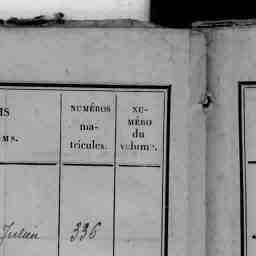 NUMÉROS
ma-
tricules.
NU-
MÉRO
du
volume.
Julien 336